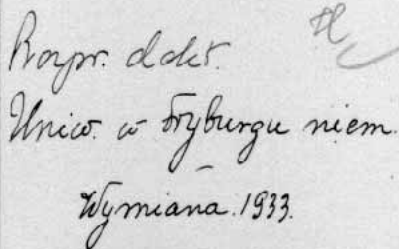 Rozpr. dokt.
Uniw. w Fryburgu niem.
Wymiana. 1933.